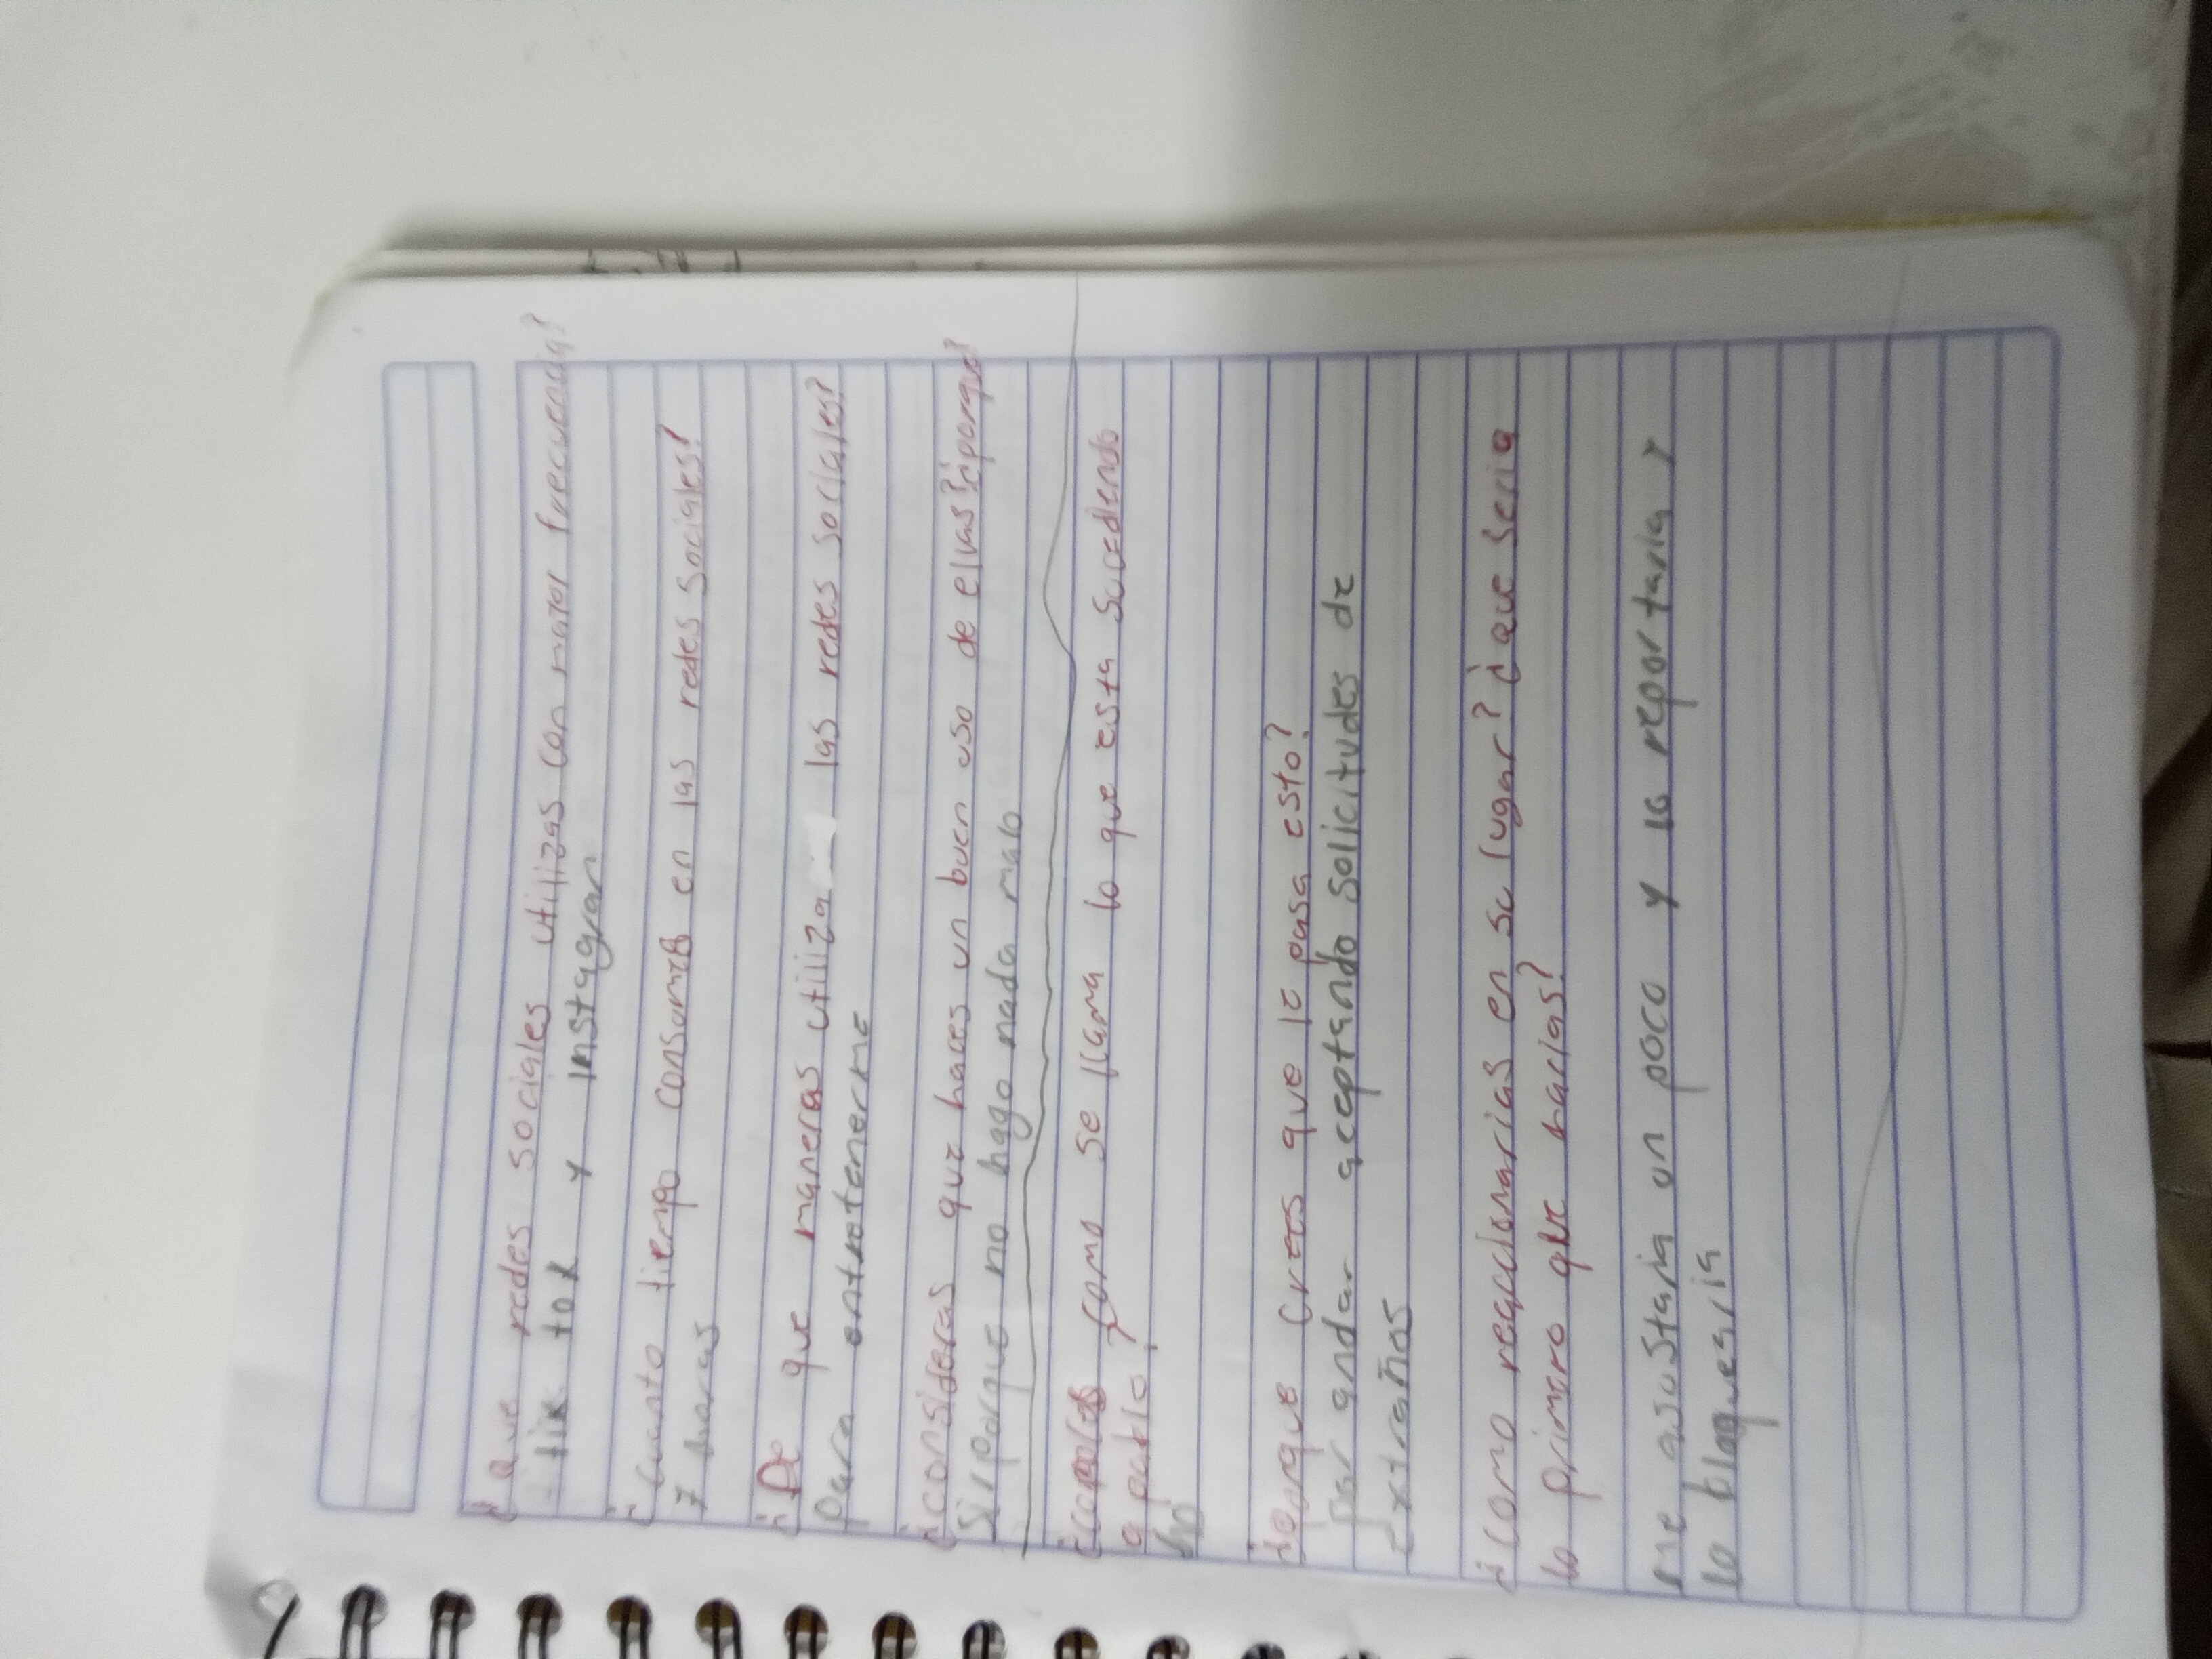 ¿que redes sociales utilizas con mayor frecuencia?
tik tok y instagran
¿cuanto tiempo consumes en las redes sociales?
7 horas
¿De que maneras utiliza las redes sociales?
para entretenerme
¿consideras que haces un buen uso de ellas?¿porque?
si porque no hago nada malo
como se llama lo que esta sucediendo
a pablo?
no
¿porque crees que le pasa esto?
por andar aceptando solicitudes de
extraños
¿como reaccionarias en su lugar? ¿que seria
lo primero que harias?
me asustaria un poco y lo reportaria y
lo bloquearia